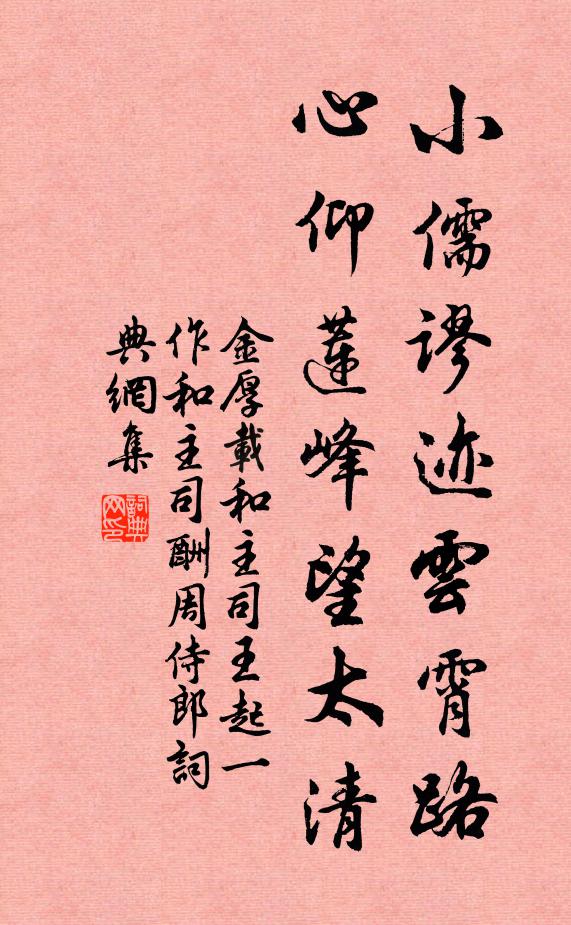 小儒謬迹雲霄路
心仰蓮峰望太清
金厚載和主司王起一
作和主司酬周侍郎詞
典網集
詞典网印